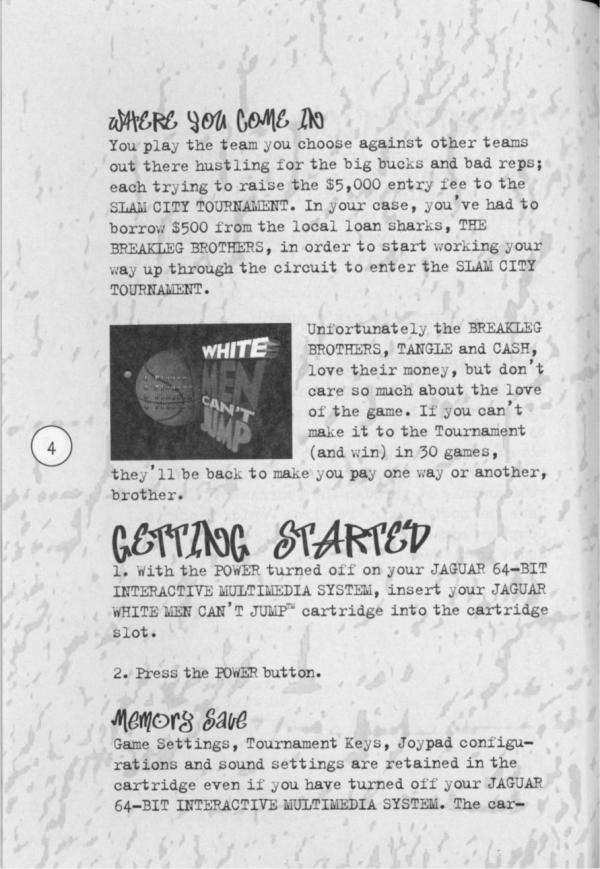 WHERE YOU COME IN
You play the team you choose against other teams
out there hustling for the big bucks and bad reps;
each trying to raise the $5,000 entry fee to the
SLAM CITY TOURNAMENT. In your case, you've had to
borrow $500 from the local loan sharks, THE
BREAKLEG BROTHERS, in order to start working your
way up through the circuit to enter the SLAM CITY
TOURNAMENT.
WHITE
MEN
CAN'T
JUMP
Unfortunately the BREAKLEG
BROTHERS, TANGLE and CASH,
love their money, but don't
care so much about the love
of the game. If you can't
make it to the Tournament
(and win) in 30 games,
they'll be back to make you pay one way or another,
brother.
4
GETTING STARTED
1. With the POWER turned off on your JAGUAR 64-BIT
INTERACTIVE MULTIMEDIA SYSTEM, insert your JAGUAR
WHITE MEN CAN'T JUMP™ cartridge into the cartridge
slot.
2. Press the POWER button.
Memory Save
Game Settings, Tournament Keys, Joypad configu-
rations and sound settings are retained in the
cartridge even if you have turned off your JAGUAR
64-BIT INTERACTIVE MULTIMEDIA SYSTEM. The car-